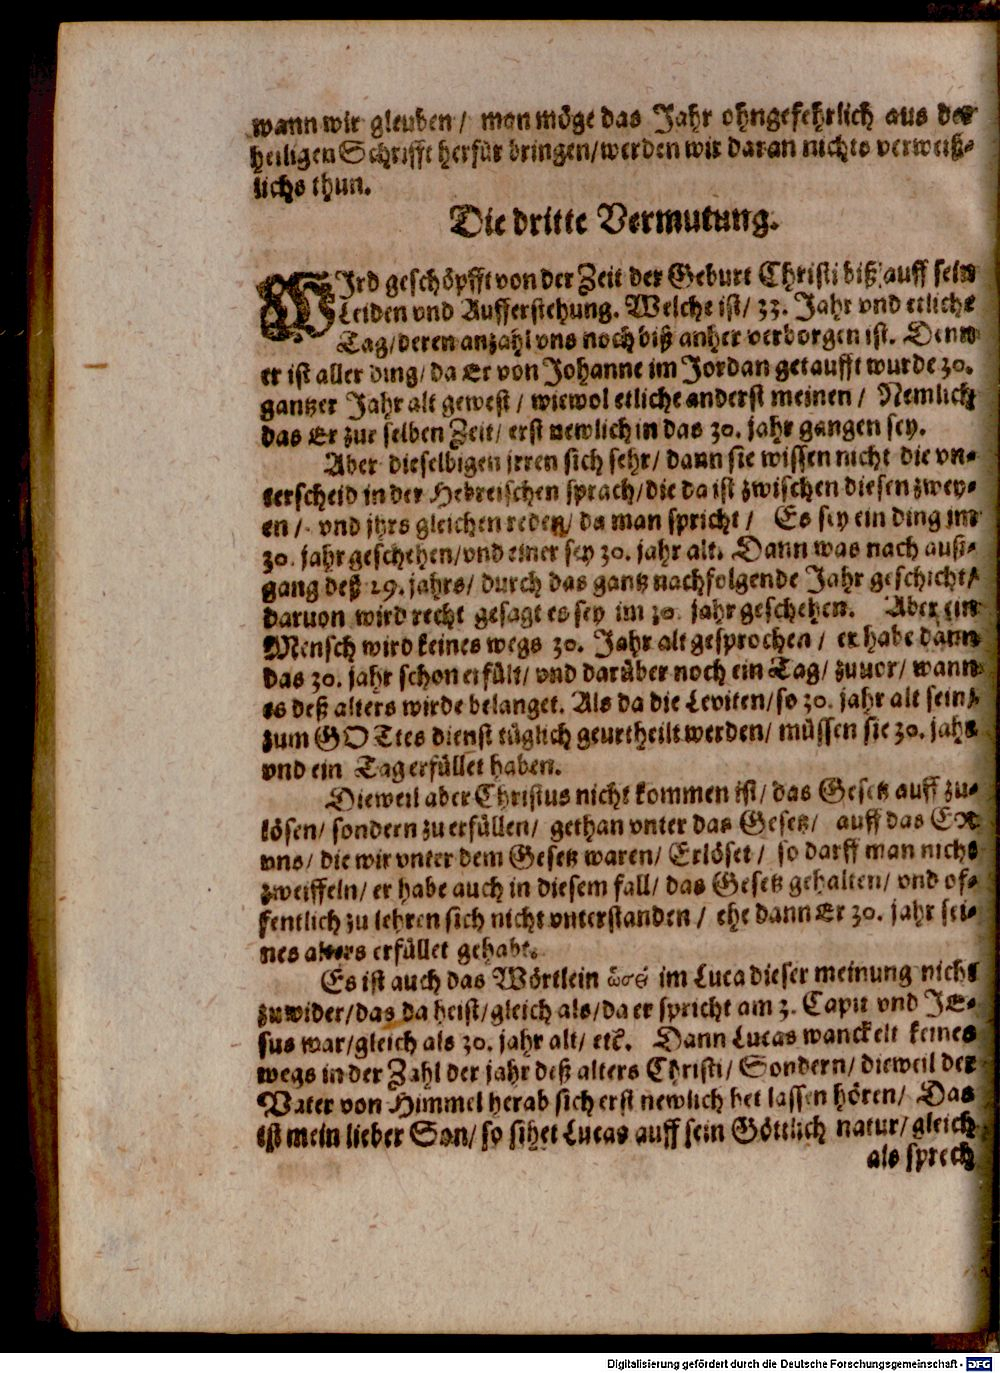 wann wir gleuben / man möge das Jahr ohngefehrlich aus der
heiligen Schrifft herfür bringen/werden wir daran nichts verweiß-
lichs thun.
Die dritte Vermutung.
WIrd geschöpfft von der Zeit der Geburt Christi biß auff sein
Leiden vnd Aufferstehung. Welche ist/ 33. Jahr vnd etliche
Tag/deren anzahl vns noch biß anher verborgen ist. Denn
er ist aller ding/da Er von Johanne im Jordan getaufft wurde 30.
gantzer Jahr alt gewest / wiewol etliche anderst meinen / Nemlich
das Er zur selben Zeit/ erst newlich in das 30. jahr gangen sey.
Aber dieselbigen irren sich sehr/ dann sie wissen nicht die vn-
terscheid in der Hebreischen sprach/die da ist zwischen diesen zwey-
en / vnd jhrs gleichen reden/ da man spricht / Es sey ein ding im
30. jahr geschehen/vnd einer sey 30. jahr alt. Dann was nach auß-
gang deß 29. jahrs/ durch das gantz nachfolgende Jahr geschicht/
daruon wird recht gesagt es sey im 30. jahr geschehen. Aber ein
Mensch wird keines wegs 30. Jahr alt gesprochen / er habe dann
das 30. jahr schon erfült/ vnd darüber noch ein Tag/ zuuor/ wann
es deß alters wirde belanget. Als da die Leviten/so 30. jahr alt sein/
zum GOTtes dienst tüglich geurtheilt werden/ müssen sie 30. jahr
vnd ein Tag erfüllet haben.
Dieweil aber Christus nicht kommen ist/ das Gesetz auff zu-
lösen/ sondern zu erfüllen/ gethan vnter das Gesetz/ auff das Er
vns/ die wir vnter dem Gesetz waren/ Erlöset / so darff man nicht
zweiffeln/ er habe auch in diesem fall/ das Gesetz gehalten/ vnd of-
fentlich zu lehren sich nicht vnterstanden / ehe dann Er 30. jahr sei-
nes alters erfüllet gehabt.
Es ist auch das Wörtlein ὡσεὶ im Luca dieser meinung nicht
zuwider/das da heist/gleich als/da er spricht am 3. Capit vnd JE-
sus war/gleich als 30. jahr alt/ etc. Dann Lucas wanckelt keines
wegs in der Zahl der jahr deß alters Christi/ Sondern/ dieweil der
Vater von Himmel herab sich erst newlich het lassen hören/ Das
ist mein lieber Son/ so sihet Lucas auff sein Göttlich natur/ gleich
als sprech
Digitalisierung gefördert durch die Deutsche Forschungsgemeinschaft - DFG